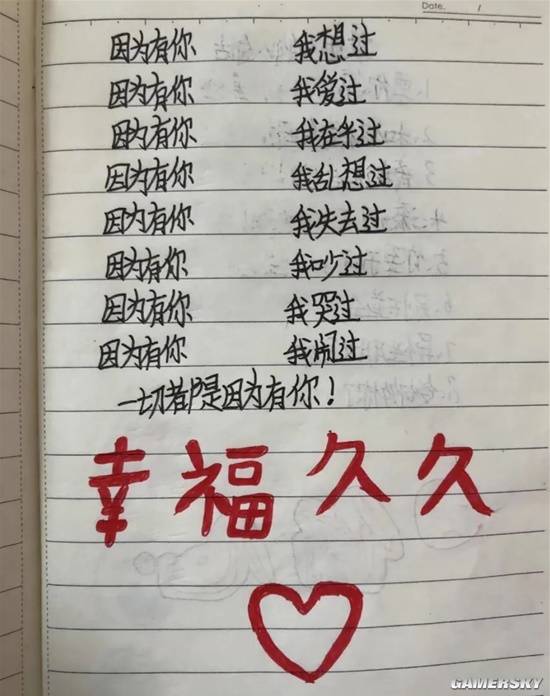 Date. /
因为有你 我想过
因为有你 我爱过
因为有你 我在乎过
因为有你 我乱想过
因为有你 我失去过
因为有你 我吵过
因为有你 我哭过
因为有你 我闹过
一切都是因为有你！
幸福久久
GAMERSKY